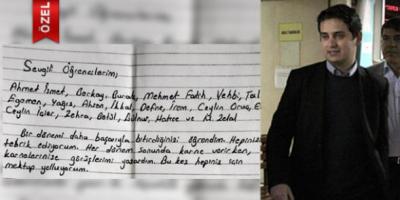 ÖZEL
Sevgili Öğrencilerim,
Ahmet İsmet, Berkay, Burak, Mehmet Fatih, Vehbi,
Egemen, Yağız, Ahsen, İkbal, Defne, İrem, Ceylin
Ceylin İclar, Zehra, Betül, Gülnur, Hatice ve
Bir dönemi daha başarıyla bitirdiğinizi öğrendim. Hepinizi
tebrik ediyorum. Her dönem sonunda karne verirken,
karnelerinize görüşlerimi yazardım. Bu kez hepiniz için
mektup yolluyorum.